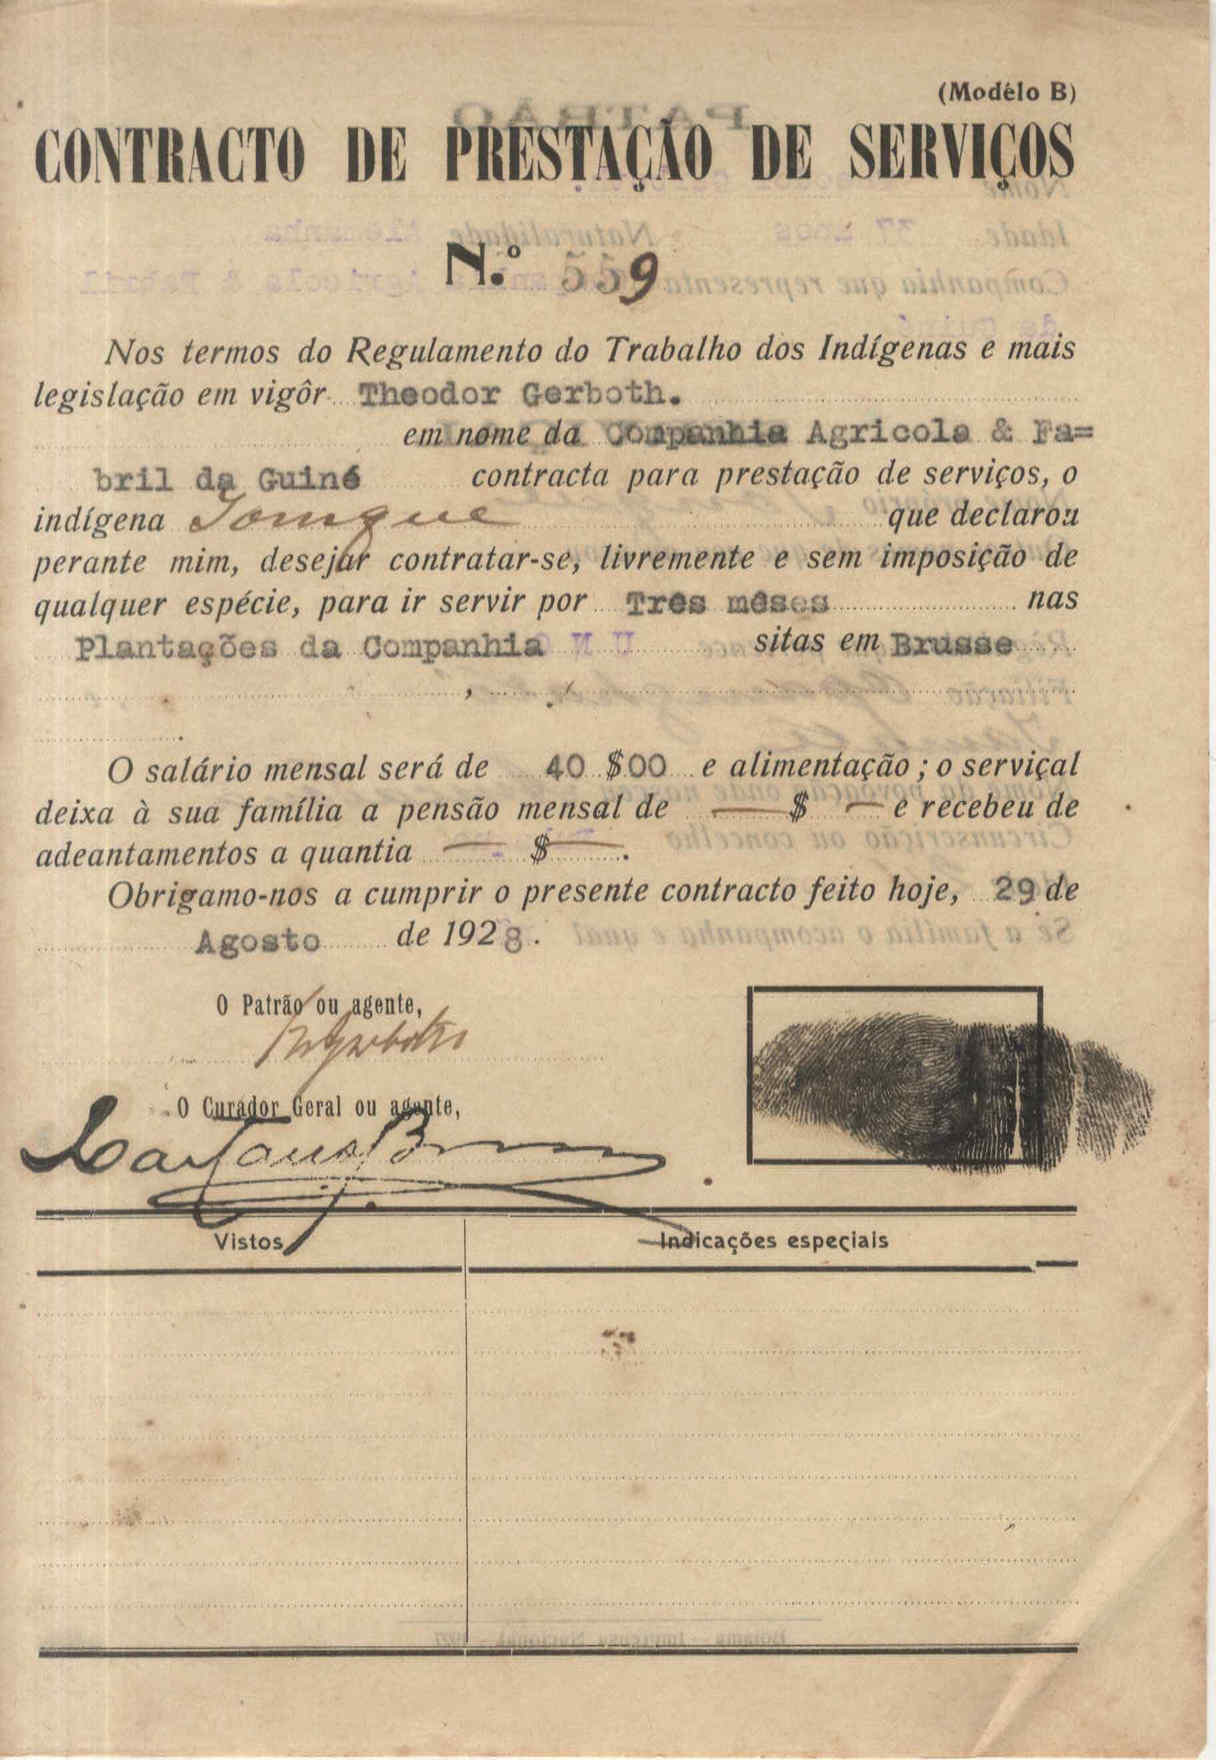 (Modêlo B)
CONTRACTO DE PRESTAÇÃO DE SERVIÇOS
N.º 559
Nos termos do Regulamento do Trabalho dos Indígenas e mais
legislação em vigôr Theodor Gerboth.
em nome da Companhia Agricola & Fa=
bril da Guiné contracta para prestação de serviços, o
indígena que declarou
perante mim, desejar contratar-se, livremente e sem imposição de
qualquer espécie, para ir servir por Três mêses nas
Plantações da Companhia sitas em Brusse
O salário mensal será de 40 $00 e alimentação; o serviçal
deixa à sua família a pensão mensal de — $ — e recebeu de
adeantamentos a quantia — $ — .
Obrigamo-nos a cumprir o presente contracto feito hoje, 29 de
Agosto de 1928.
O Patrão ou agente,
O Curador Geral ou agente,
Vistos
Indicações especiais